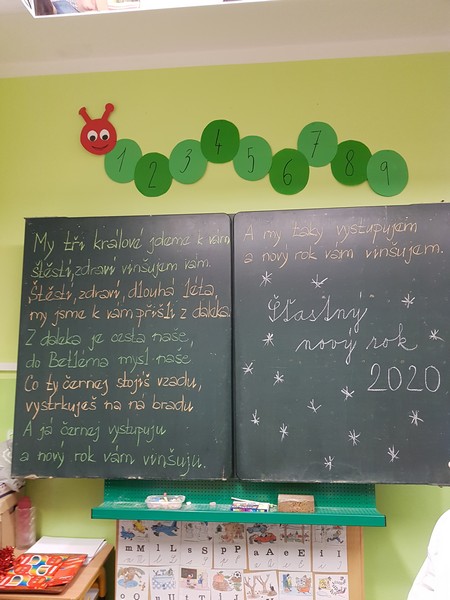 1 2 3 4 5 6 7 8 9
My tři králové jdeme k vám
štěstí, zdraví vinšujem vám.
Štěstí, zdraví, dlouhá léta,
my jsme k vám přišli z daleka.
Z daleka je cesta naše,
do Betléma mysl naše
Co ty černej stojíš vzadu,
vystrkuješ na ná bradu
A já černej vystupuju
a nový rok vám vinšuju.
A my taky vystupujem
a nový rok vám vinšujem.
Šťastný
nový rok
2020
m M l L s S p P a A e E i I
o O u U t T